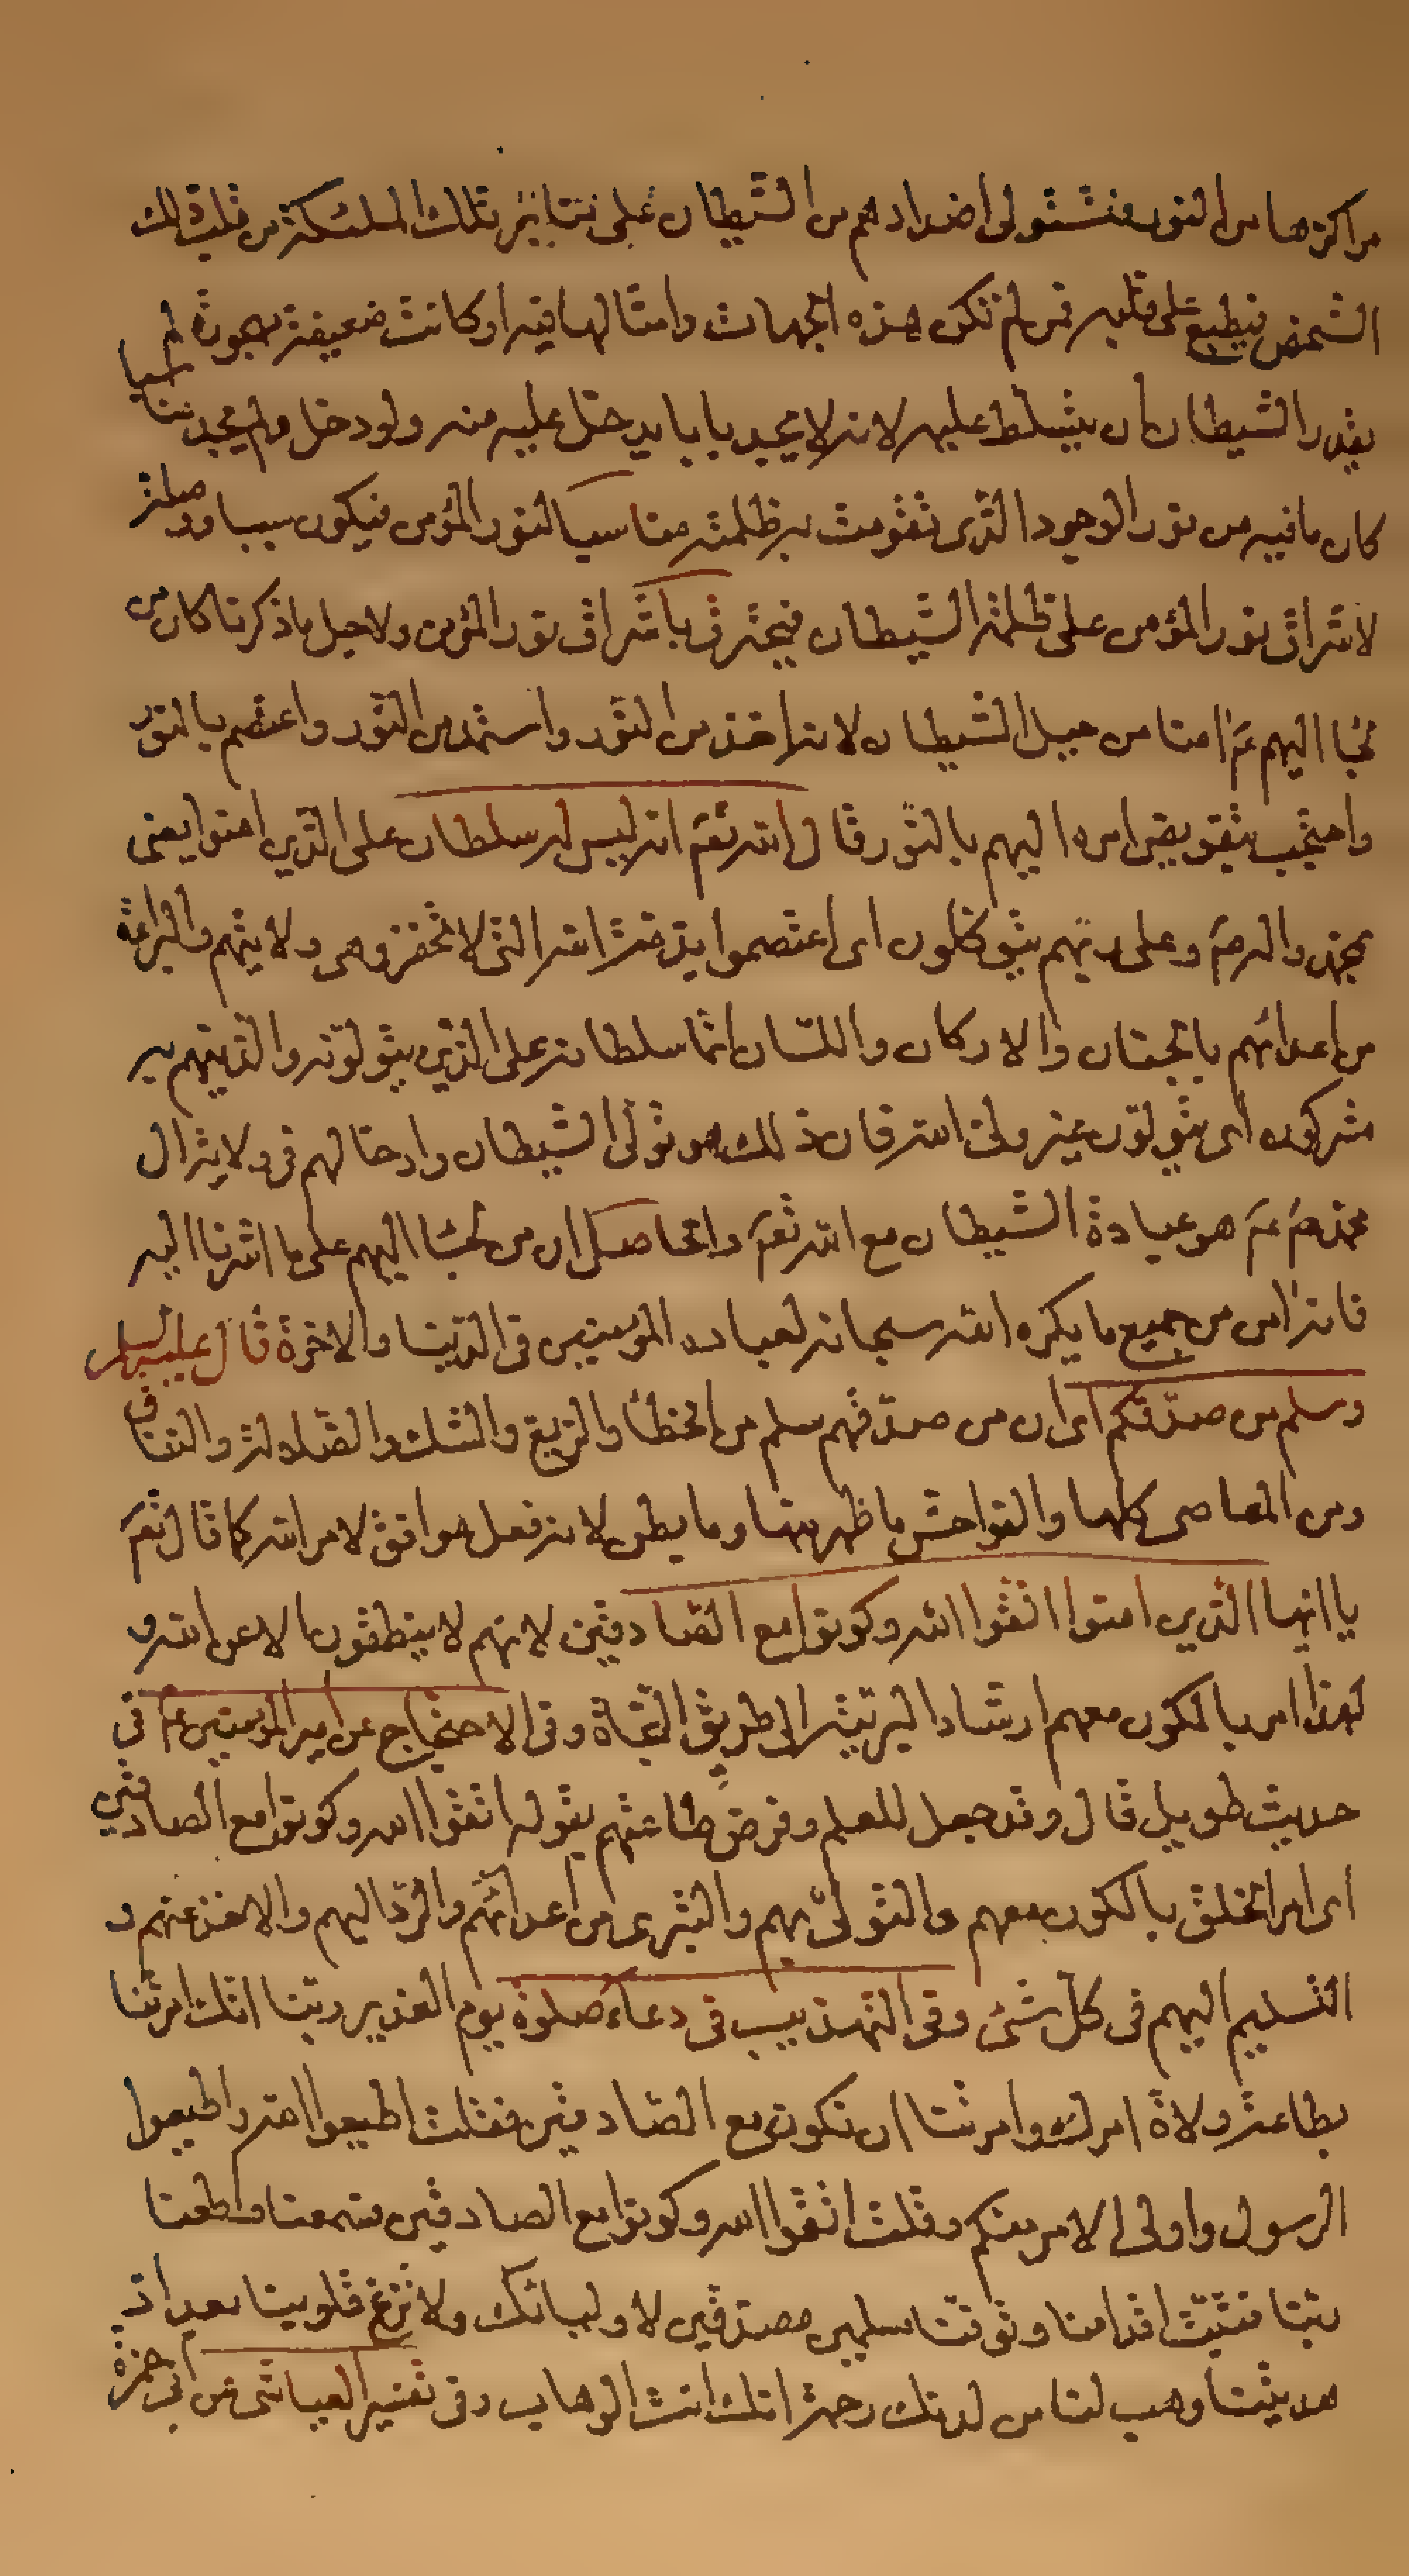 مراكزها من النور فتستولى اضدادهم من الشيطان على نتايز تلك الملئكة من قلب ذلك
الشخص فيطبع على قلبه فمن لم تكن هذه الجهات وامثالها فيه او كانت ضعيفة بجهوده لم
يقدر الشيطان ان يتسلط عليه لانه لا يجد بابا يدخل عليه منه ولو دخل ولم يجد مناسبا
كان ما فيه من نور الوجود الذى تقومت به ظلمته مناسبا لنور المؤمن فيكون سببا ووصلة
لاشراق نور المؤمن على ظلمة الشيطان فيحترق باشراق نور المؤمن ولاجل ما ذكرنا كان من
لجأ اليهم ع٣ امنا من حيل الشيطان لانه اخذ من النور واستمد من النور واعتصم بالنور
واحتجب بتفويض امره اليهم بالنور قال الله تعم انه ليس له سلطان على الذين امنوا يعنى
بمحمد واله ص٣ وعلى ربهم يتوكلون اى اعتصموا بذمة الله التى لا تخفر وهى ولايتهم والبراءة
من اعدائهم بالجنان والاركان واللسان انما سلطانه على الذين يتولونه والذينهم به
مشركون اى يتولون غير ولى الله فان ذلك هو تولى الشيطان وادخالهم فى ولاية ال
محمد ص٣ ع٣ هو عبادة الشيطان مع الله تعم والحاصل ان من لجأ اليهم على ما اشرنا اليه
فانه امن من جميع ما يكره الله سبحانه لعباده المؤمنين فى الدنيا والاخرة قال عليه السلم
وسلم من صدقكم اى ان من صدقهم سلم من الخطأ والزيغ والشك والضلالة والنفاق
ومن المعاصى كلها والفواحش ما ظهر منها وما بطن لانه فعل موافق لامر الله كما قال تعم
يا ايها الذين امنوا اتقوا الله وكونوا مع الصادقين لانهم لا ينطقون الا عن الله و
لهذا امر بالكون معهم ارشادا لبريته الى طريق النجاة وفى الاحتجاج عن امير المؤمنين ع٣ فى
حديث طويل قال وقد جعل للعلم وفرض طاعتهم بقوله اتقوا الله وكونوا مع الصادقين
اى امر الخلق بالكون معهم والتولى بهم والتبرى من اعدائهم والرد اليهم والاخذ عنهم و
التسليم اليهم فى كل شئ وفى التهذيب فى دعاء صلوة يوم الغدير ربنا انك امرتنا
بطاعة ولاة امرك وامرتنا ان نكون مع الصادقين فقلت اطيعوا الله واطيعوا
الرسول واولى الامر منكم وقلت اتقوا الله وكونوا مع الصادقين فسمعنا واطعنا
ربنا فثبت اقدامنا وتوفنا مسلمين مصدقين لاوليائك ولا تزغ قلوبنا بعد اذ
هديتنا وهب لنا من لدنك رحمة انك انت الوهاب وفى تفسير العياشى عن ابى حمزة